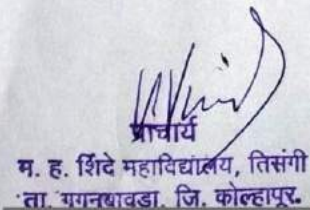 प्राचार्य
म. ह. शिंदे महाविद्यालय, तिसंगी
ता. गगनबावडा. जि. कोल्हापूर.